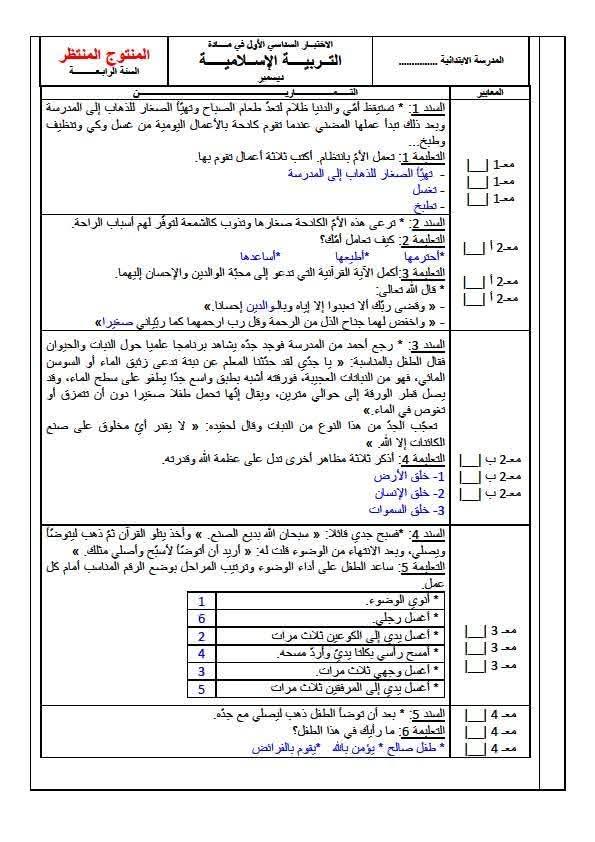 المدرسة الابتدائية ...............
الاختبار السداسي الأول في مـــادة
التـــربيـــــة الإســـلاميـــــة
ديسمبر
المنتوج المنتظر
السنة الرابعـــــة
المعايير
التـــمـــــــاريـــــــــن
السند 1: * تستيقظ أمّي والدنيا ظلام لتعدّ طعام الصباح وتهيّأ الصغار للذهاب إلى المدرسة
وبعد ذلك تبدأ عملها المضني عندما تقوم كادحة بالأعمال اليومية من غسل وكي وتنظيف
وطبخ...
التعليمة 1: تعمل الأمّ بانتظام. أكتب ثلاثة أعمال تقوم بها.
- تهيّأ الصغار للذهاب إلى المدرسة
- تغسل
- تطبخ
معـ1 |__|
معـ1 |__|
معـ1 |__|
السند 2: * ترعى هذه الأمّ الكادحة صغارها وتذوب كالشمعة لتوفّر لهم أسباب الراحة.
التعليمة 2: كيف تعامل أمّك؟
*أحترمها *أطيعها *أساعدها
التعليمة 3:أكمل الآية القرآنية التي تدعو إلى محبّة الوالدين والإحسان إليهما.
* قال الله تعالى:
- « وقضى ربّك ألا تعبدوا إلا إياه وبالـوالدين إحسانا.»
- « واخفض لهما جناح الذل من الرحمة وقل رب ارحمهما كما ربّياني صغيرا»
معـ2 أ |__|
معـ2 أ |__|
معـ2 أ |__|
السند 3: * رجع أحمد من المدرسة فوجد جدّه يشاهد برنامجا علميا حول النبات والحيوان
فقال الطفل بالمناسبة: « يا جدّي لقد حدّثنا المعلم عن نبتة تدعى زئبق الماء أو السوسن
المائي، فهو من النباتات العجيبة، فورقته أشبه بطبق واسع جدّا يطفو على سطح الماء، وقد
يصل قطر الورقة إلى حوالي مترين، ويقال إنّها تحمل طفلا صغيرا دون أن تتمزق أو
تغوص في الماء.»
تعجّب الجدّ من هذا النوع من النبات وقال لحفيده: « لا يقدر أيّ مخلوق على صنع
الكائنات إلا الله. »
التعليمة 4: أذكر ثلاثة مظاهر أخرى تدل على عظمة الله وقدرته.
1- خلق الأرض
2- خلق الإنسان
3- خلق السموات
معـ2 ب |__|
معـ2 ب |__|
معـ2 ب |__|
السند 4: *فسبح جدي قائلا: « سبحان الله بديع الصنع. » وأخذ يتلو القرآن ثمّ ذهب ليتوضّأ
ويصلي، وبعد الانتهاء من الوضوء قلت له: « أريد أن أتوضّأ لأسبّح وأصلي مثلك. »
التعليمة 5: ساعد الطفل على أداء الوضوء وترتيب المراحل بوضع الرقم المناسب أمام كل
عمل.
* أنوي الوضوء. 1
* أغسل رجلي. 6
* أغسل يدي إلى الكوعين ثلاث مرات 2
* أمسح رأسي بكلتا يديّ وأردّ مسحه. 4
* أغسل وجهي ثلاث مرات. 3
* أغسل يدي إلى المرفقين ثلاث مرات 5
معـ 3 |__|
معـ 3 |__|
معـ 3 |__|
السند 5: * بعد أن توضأ الطفل ذهب ليصلي مع جدّه.
التعليمة 6: ما رأيك في هذا الطفل؟
* طفل صالح * يؤمن بالله *يقوم بالفرائض
معـ 4 |__|
معـ 4 |__|
معـ 4 |__|